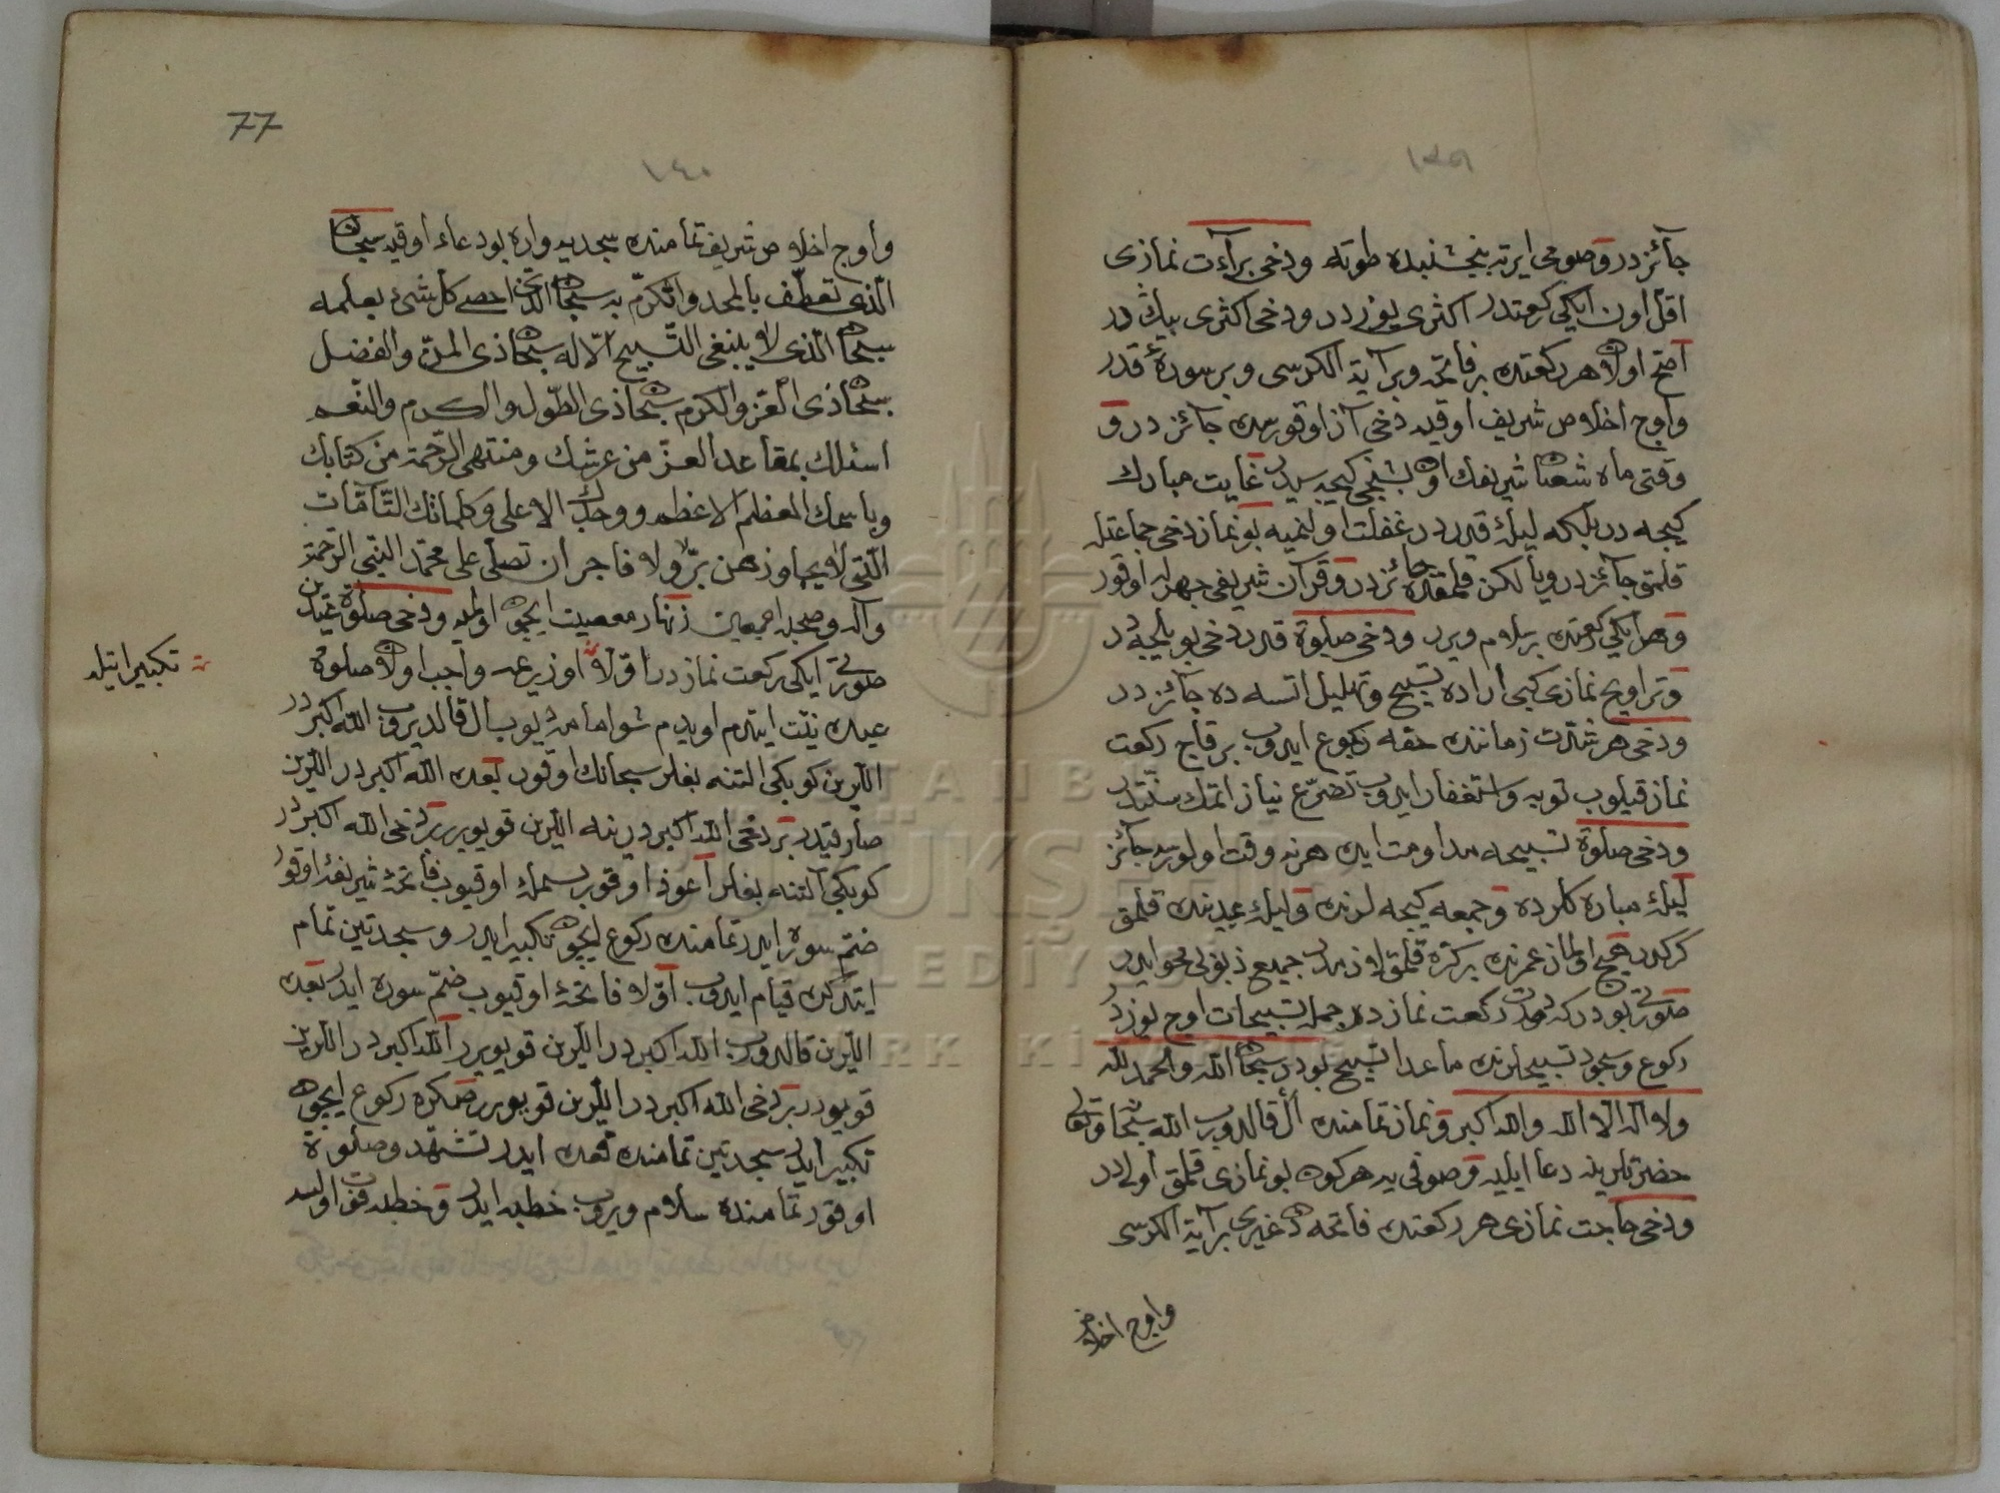 ١٣٩
جائزدر وصومى ايرته پنجشنبده طوته ودخى برآءت نمازى
اقل اون ايكى ركعتدر اكثرى يوزدر ودخى اكثرى بيك در
اصح اولان هر ركعتده بر فاتحه وبر آية الكرسى وبر سورهٔ قدر
واوچ اخلاص شريف اوقيه دخى آز اوقورسه جائزدر و
وقتى ماه شعبان شريفك اون بشنجى كيجه سيدر غايت مبارك
كيجه در بلكه ليلۀ قدردر غفلت اولنميه بو نماز دخى جماعتله
قلمق جائزدر ويالكز قلمقده جائزدر و قرآن شريفى جهرله اوقور
وهر ايكى ركعتده بر سلام ويرر ودخى صلوة قدر دخى بويلجه در
وتراويح نمازى كبى اراده تسبيح وتهليل اتسه ده جائزدر
ودخى هر شدّت زماننده حقه رجوع ايدوب بر قاچ ركعت
نماز قيلوب توبه واستغفار ايدوب تضرّع نياز اتمك سنّتدر
ودخى صلوة تسبيحه مداومت ايده هر نه وقت اولورسه جائز
ليلۀ مباركلرده وجمعه كيجه لرنده وليلۀ عيدينده قلمق
كركدر هيچ اولماز عمرنده بر كره قلمق لازمدر جميع ذنوبى محو ايدر
صورتى بودر كه درت ركعت نمازده جمله تسبيحات اوچ يوزدر
ركوع وسجود تسبيحلرنده ماعدا تسبيح بودر سبحان الله والحمد لله
ولا اله الا الله والله اكبر ونماز تمامنده ال قالدروب الله سبحان وتعالى
حضرتلرينه دعا ايليه وصوفى يه هر كون بو نمازى قلمق اولادر
ودخى حاجت نمازى هر ركعتده فاتحه دن غيرى بر آية الكرسى
واوچ اخلاص
77
١٤٠
واوچ اخلاص شريف تمامنده سجديه واره بو دعاء اوقيه سبحان
الّذى تعطّف بالمجد وتكرّم به سبحان الذى احصى كل شئ بعلمه
سبحان الّذى لا ينبغى التّسبيح الّا له سبحان ذى المنّ والفضل
سبحان ذى العزّ والكرم سبحان ذى الطّول والكرم والنّعم
اسئلك بمقاعد العزّ من عرشك ومنتهى الرّحمة من كتابك
وباسمك المعظّم الاعظم ووجهك الاعلى وكلماتك التّآمّات
الّتى لا يجاوزهن برّ ولا فاجر ان تصلّى على محمّد النّبى الرّحمة
وآله وصحبه اجمعين زنهار معصيت ايچون اولميه ودخى صلوة عيدين
صورتى ايكى ركعت نمازدر اوّلا اوزريمه واجب اولان صلوة
عيده نيّت ايتدم اويدم شو امامه ديوب ال قالديروب الله اكبر در
اللّرين كوبكى التنه بغلر سبحانك اوقور بعده الله اكبر در اللّرين
صارقيدر بر دخى الله اكبر در ينه اللّرين قويويرر بر دخى الله اكبر در
كوبكى التنه بغلر اعوذ اوقور بسمله اوقيوب فاتحهٔ شريفه اوقور
ضمّ سوره ايدر تمامنده ركوع ايچون تكبير ايدر وسجدتين تمام
ايتدكده قيام ايدوب اوّلا فاتحهٔ اوقيوب ضمّ سوره ايدر بعده
اللّرين قالدروب الله اكبر در اللّرين قويويرر الله اكبر در اللّرين
قويويرر بر دخى الله اكبر در اللّرين قويويرر صكره ركوع ايچون
تكبير ايدر سجدتين تمامنده قعده ايدر تشهّد وصلوة
اوقور تمامنده سلام ويروب خطبه ايدر وخطبه فوت اولسه
تكبير ايتيله